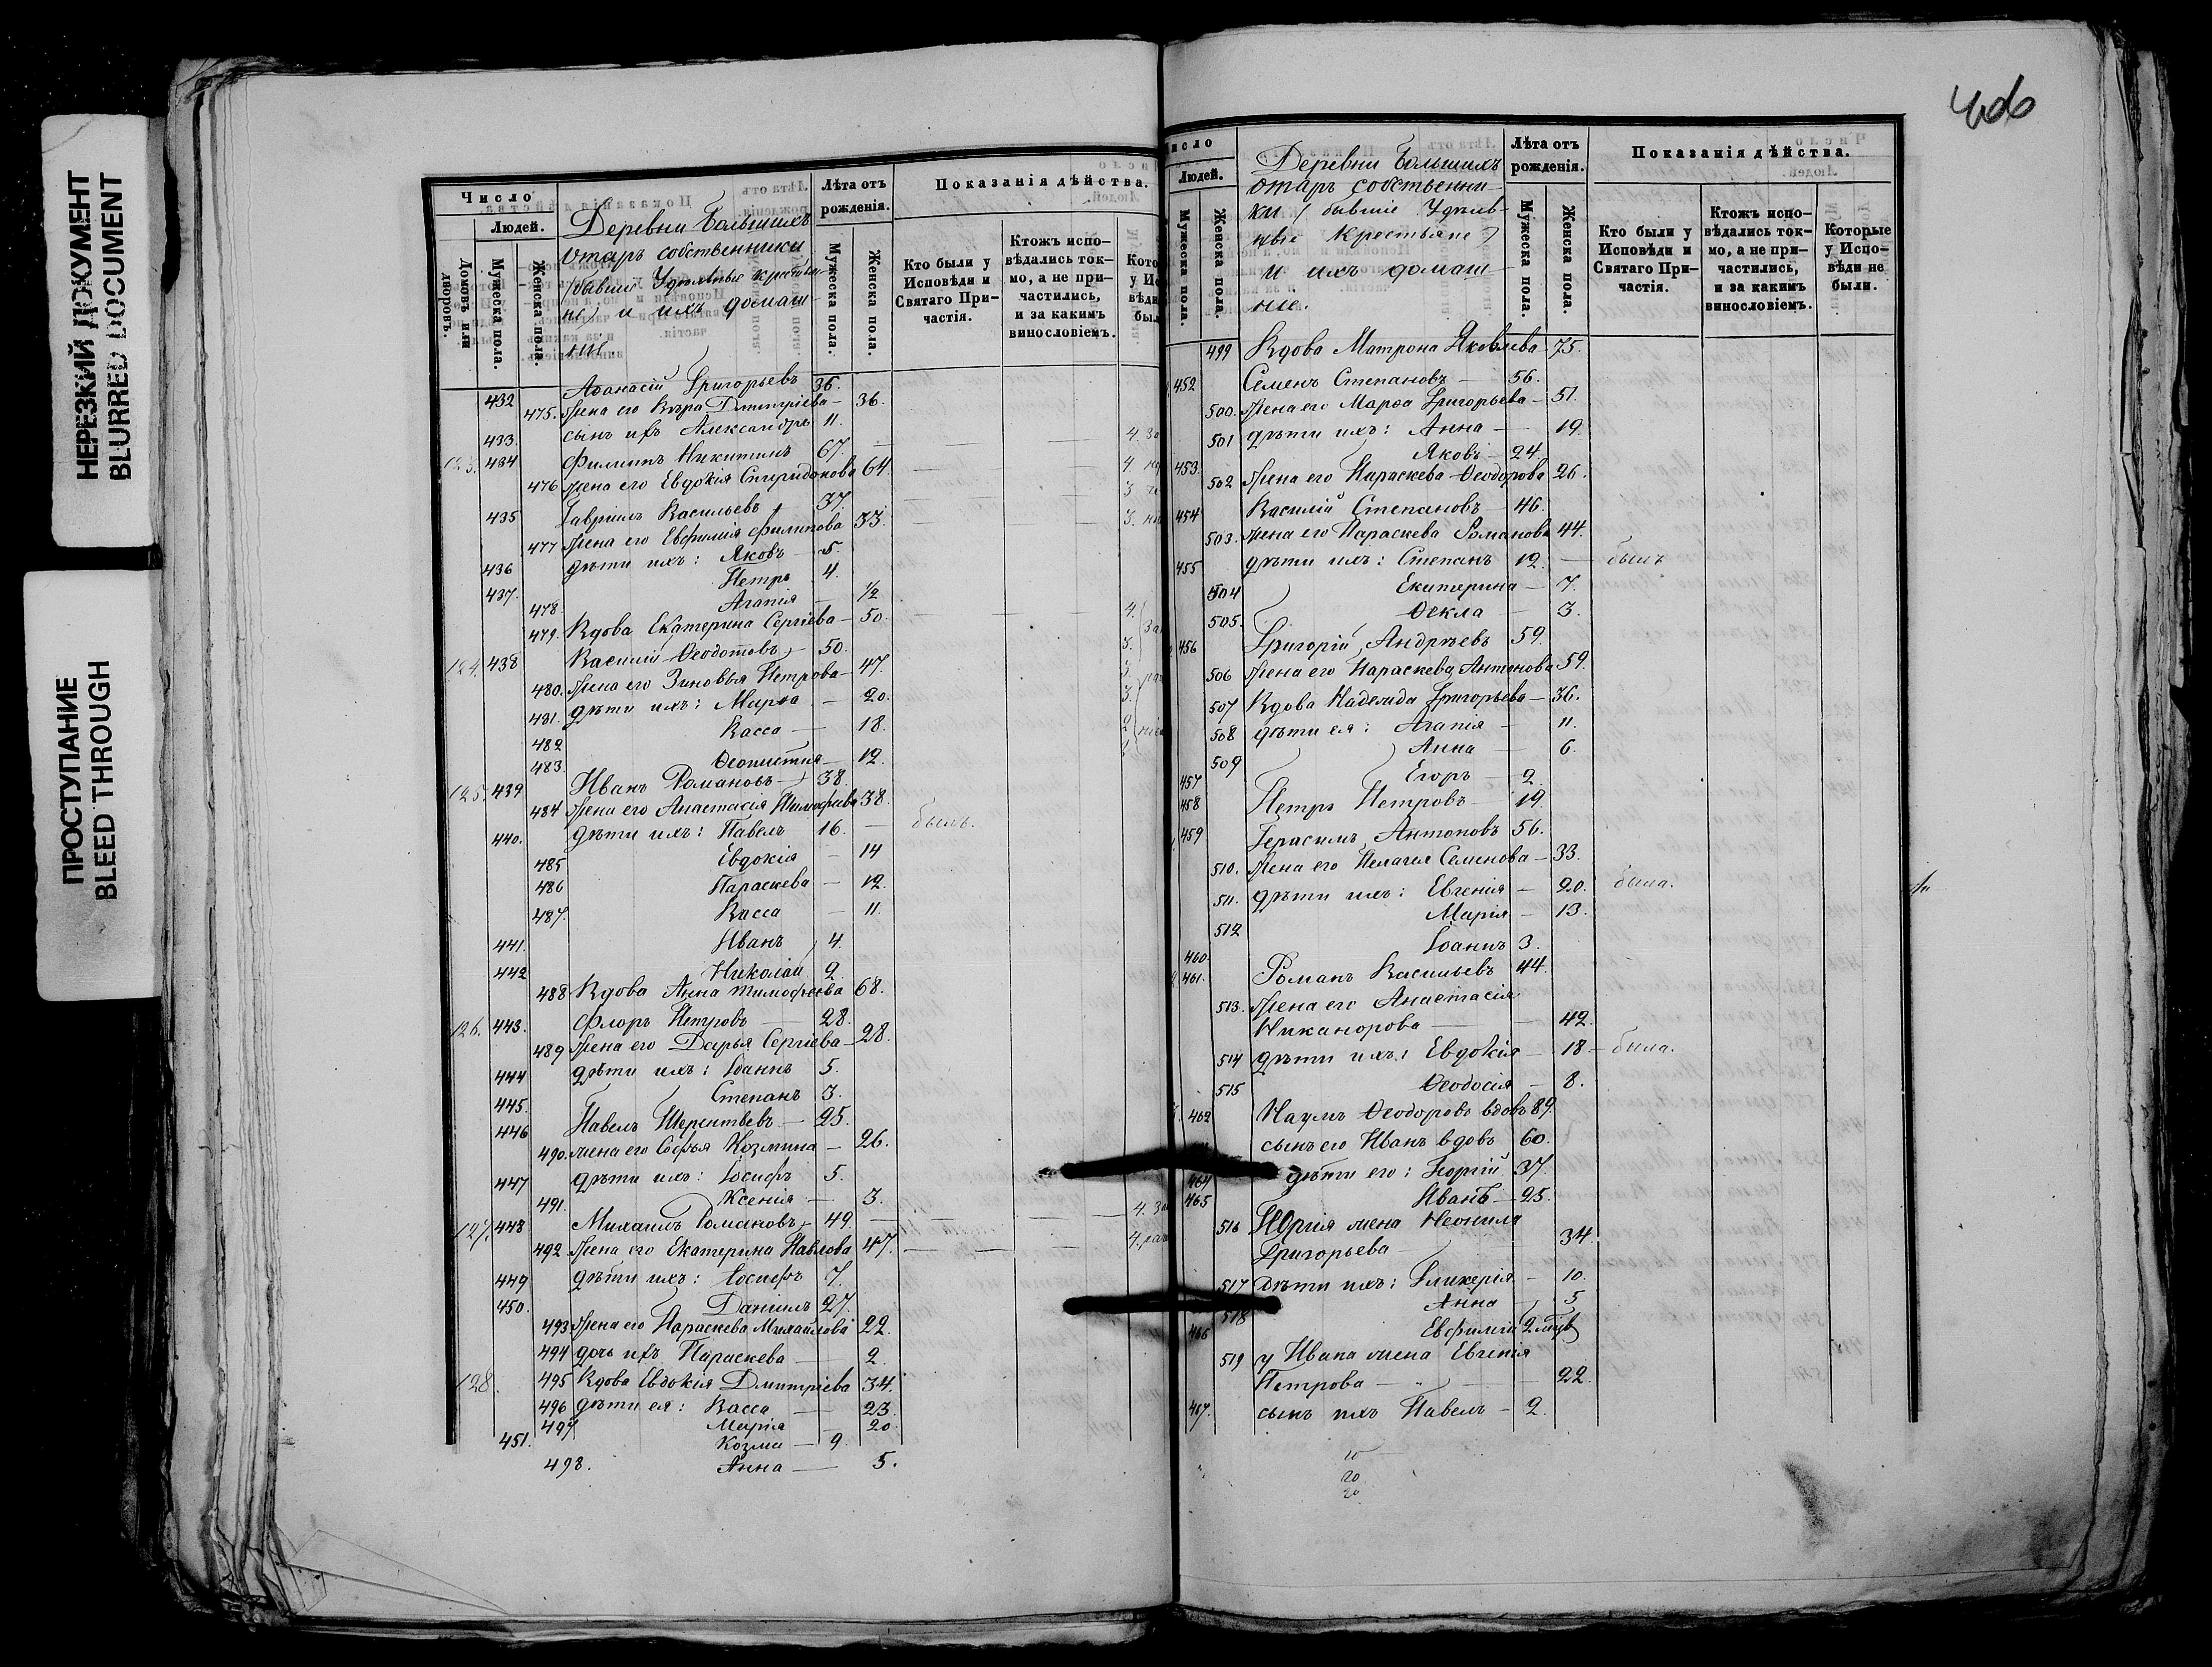 НЕРЕЗКИЙ ДОКУМЕНТ
BLURRED DOCUMENT
ПРОСТУПАНИЕ
BLEED THROUGH
Число
Людей.
Домовъ или дворовъ.
Мужеска пола.
Женска пола.
Деревни Большихъ
Отаръ собственники
(бывшіе Удѣльные крестья-
не) и ихъ домаш-
ніе.
Лѣта отъ рожденія.
Мужеска пола.
Женска пола.
Показанія дѣйства.
Кто были у Исповѣди и Святаго При-частія.
Ктожъ испо-вѣдались ток-мо, а не при-частились, и за какимъ винословіемъ.
432 Аѳанасій Григорьевъ 36.
475. Жена его Вѣра Дмитріева — 36.
433. сынъ ихъ Александръ 11.
123. 434 Филиппъ Никитинъ 67.
476 Жена его Евдокія Спиридонова 64.
435 Гавріилъ Васильевъ 37.
477 Жена его Евфимія Филипова 33.
436 дѣти ихъ: Яковъ — 5.
437. Петръ 4.
478. Агапія — 1/2
479. Вдова Екатерина Сергіева — 50.
124. 438 Василій Ѳеодотовъ 50.
480. Жена его Зиновья Петрова — 47.
481. дѣти ихъ: Марѳа — 20.
482 Васса — 18.
483. Ѳеопистия — 12.
125. 439 Иванъ Романовъ — 38
484 Жена его Анастасія Тимофеева 38.
440. дѣти ихъ: Павелъ 16. — былъ.
485 Евдокія — 14
486 Параскева — 12.
487. Васса — 11.
441. Иванъ 4.
442 Николай 2.
488 Вдова Анна Тимофеева 68.
126. 443. Флоръ Петровъ — 28.
489 Жена его Дарья Сергіева — 28.
444 дѣти ихъ: Іоаннъ 5.
445. Степанъ 3.
446 Павелъ Терентьевъ — 25.
490. жена его Софья Козмина — 26.
447 дѣти ихъ: Іосифъ 5.
491. Ксенія — 3.
127. 448 Михаилъ Романовъ 49.
492 Жена его Екатерина Павлова 47.
449 дѣти ихъ: Іосифъ 7.
450. Даніилъ 27.
493 Жена его Параскева Михайлова 22.
494 дочь ихъ Параскева — 2.
128. 495 Вдова Евдокія Дмитріева 34.
496 дѣти ея: Васса — 23.
497 Марія — 20.
451. Козма — 9.
498. Анна — 5.
Людей.
Мужеска пола.
Женска пола.
Деревни Большихъ
отаръ собственни-
ки (бывшіе Удѣль-
ные крестьяне)
и ихъ домаш-
ніе.
Лѣта отъ рожденія.
Мужеска пола.
Женска пола.
Показанія дѣйства.
Кто были у Исповѣди и Святаго При-частія.
Ктожъ испо-вѣдались ток-мо, а не при-частились, и за какимъ винословіемъ.
Которые у Испо-вѣди не были.
499 Вдова Матрона Яковлева — 75.
452 Семенъ Степановъ — 56.
500. Жена его Марѳа Григорьева — 51.
501 дѣти ихъ: Анна — 19.
453. Яковъ — 24.
502 Жена его Параскева Ѳеодорова 26.
454 Василій Степановъ — 46.
503. Жена его Параскева Романова 44.
455 дѣти ихъ: Степанъ 12. — былъ
504 Екатерина — 7.
505. Ѳекла — 3.
456 Григорій Андреевъ 59.
506 Жена его Параскева Антонова 59.
507 Вдова Надежда Григорьева — 36.
508 дѣти ея: Агапія — 11.
509 Анна — 6.
457 Егоръ — 2.
458 Петръ Петровъ — 19.
459 Герасимъ Антоновъ 56.
510. Жена его Пелагея Семенова — 33.
511. дѣти ихъ: Евгенія — 20. была.
512 Марія — 13.
460. Іоаннъ 3.
461. Романъ Васильевъ 44.
513. Жена его Анастасія
Никанорова — 42.
514 дѣти ихъ: Евдокія — 18 — была.
515 Ѳеодосія — 8.
462 Наумъ Ѳеодоровъ вдовъ 89.
сынъ его Иванъ вдовъ 60.
464 дѣти его: Георгій 37.
465 Иванъ — 25.
516 жена Неонила
Григорьева — 34.
517 дѣти ихъ: Гликерія — 10.
518 Анна — 5
466 Евфимій 2
519 у Ивана жена Евгенія
Петрова — 22.
467. сынъ ихъ Павелъ — 2.
10
20
20